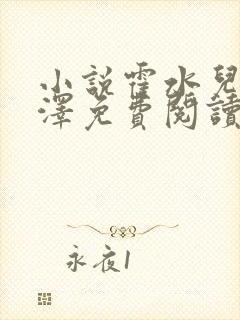 小說霍水兒
澤免費閱讀
永夜1